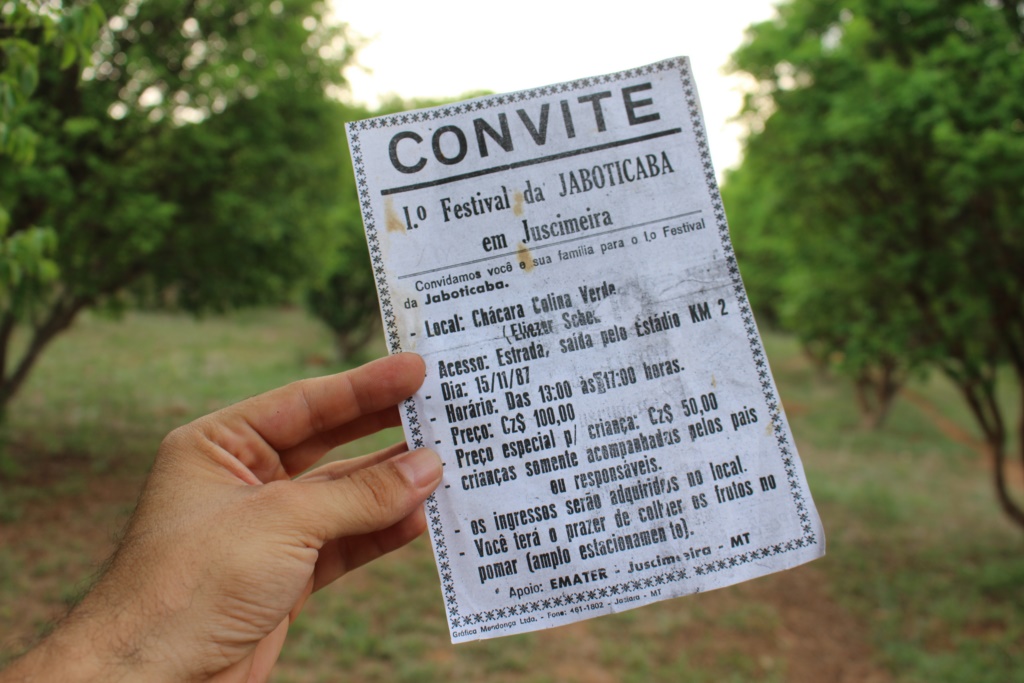 CONVITE
1.º Festival da JABOTICABA
em Juscimeira
Convidamos você e sua família para o 1.o Festival
da Jaboticaba.
- Local: Chácara Colina Verde
(Eliezer
- Acesso: Estrada, saída pelo Estádio KM 2
- Dia: 15/11/87
- Horário: Das 13:00 às 17:00 horas.
- Preço: Cz$ 100,00
Preço especial p/ criança: Cz$ 50,00
- crianças somente acompanhadas pelos pais
ou responsáveis.
- os ingressos serão adquiridos no local.
- Você terá o prazer de colher os frutos no
pomar (amplo estacionamento).
* Apoio: EMATER - Juscimeira - MT
Gráfica Mendonça Ltda. - Fone: 461-1802 - Jaciara - MT